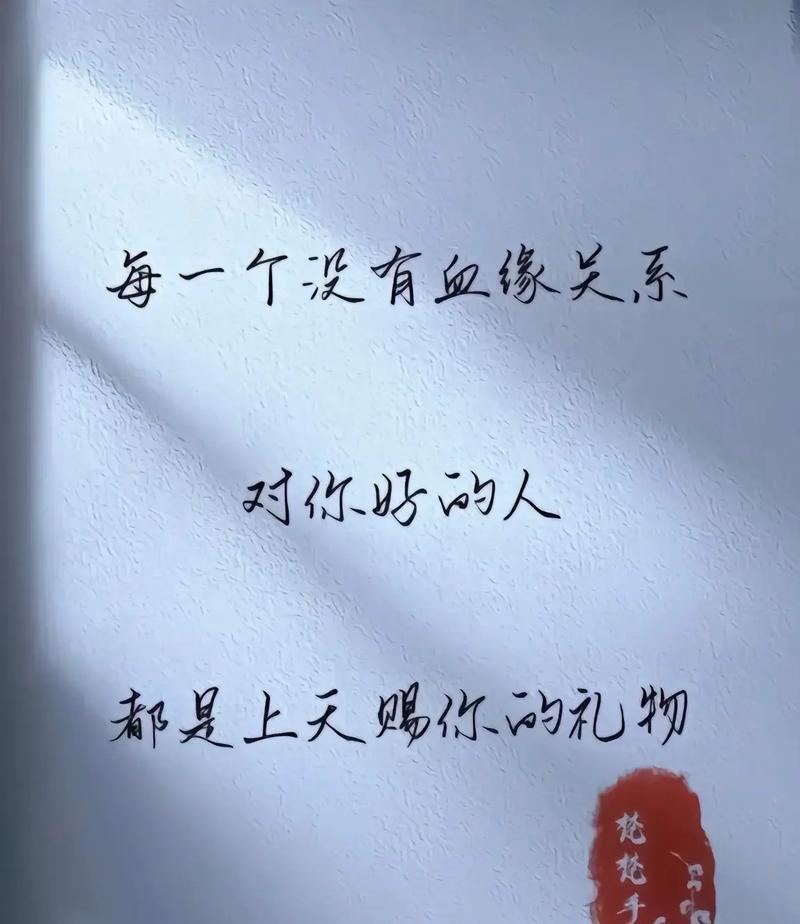 每一个没有血缘关系
对你好的人
都是上天赐你的礼物
梵梵手